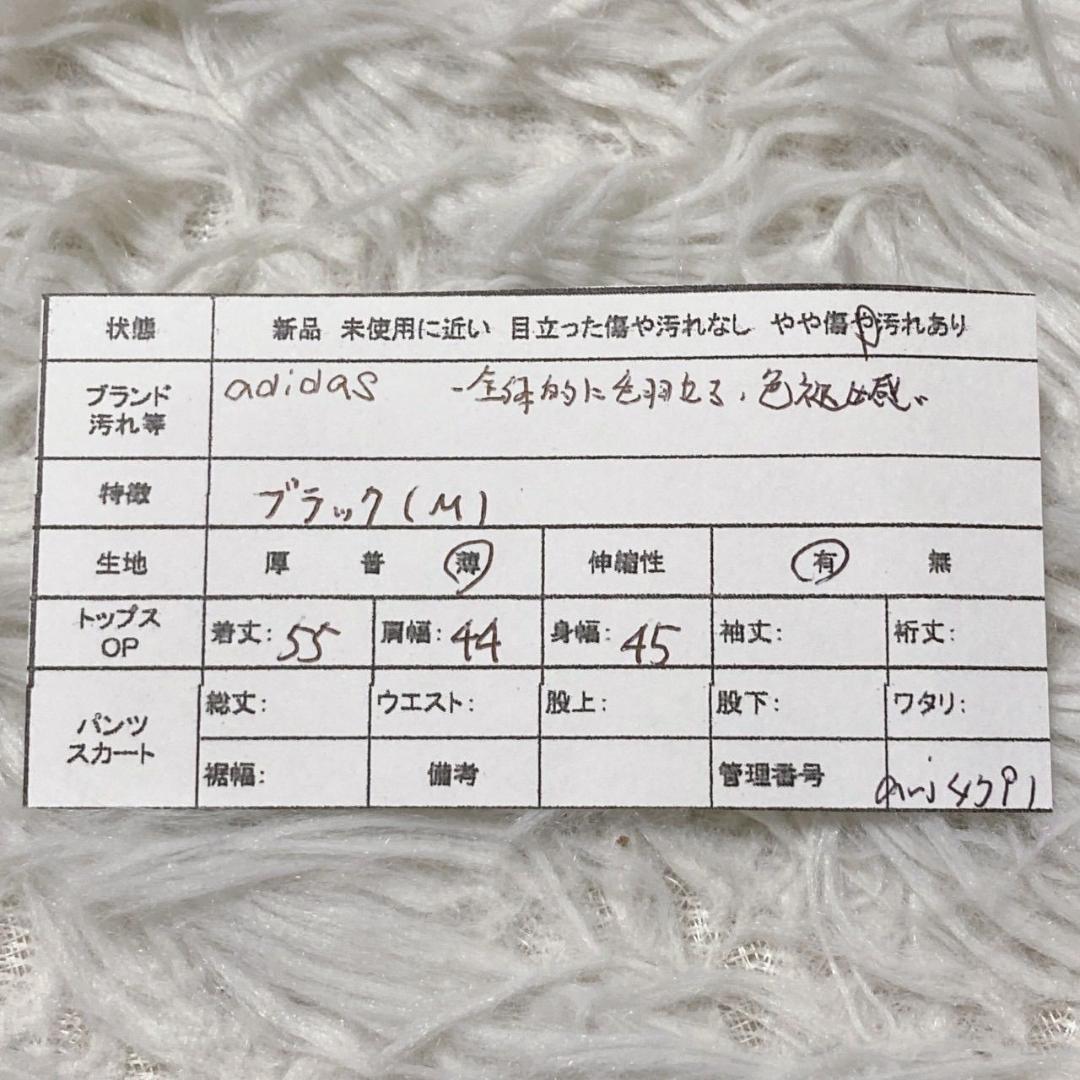 状態 新品 未使用に近い 目立った傷や汚れなし やや傷や汚れあり
ブランド 汚れ等 adidas ・全体的に毛羽立ち、色褪せ感。
特徴 ブラック(M)
生地 厚 普 薄 伸縮性 有 無
トップス OP 着丈: 55 肩幅: 44 身幅: 45 袖丈: 裄丈:
パンツ スカート 総丈: ウエスト: 股上: 股下: ワタリ:
裾幅: 備考 管理番号